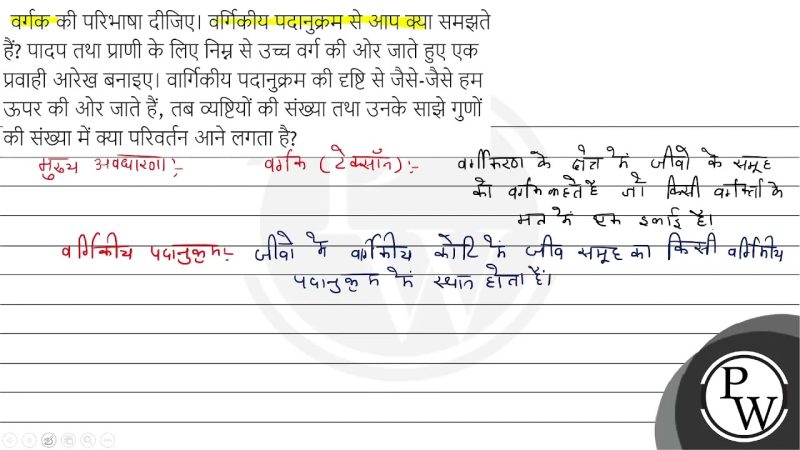 वर्गक की परिभाषा दीजिए। वर्गिकीय पदानुक्रम से आप क्या समझते
हैं? पादप तथा प्राणी के लिए निम्न से उच्च वर्ग की ओर जाते हुए एक
प्रवाही आरेख बनाइए। वार्गिकीय पदानुक्रम की दृष्टि से जैसे-जैसे हम
ऊपर की ओर जाते हैं, तब व्यष्टियों की संख्या तथा उनके साझे गुणों
की संख्या में क्या परिवर्तन आने लगता है?
मुख्य अवधारणा:- वर्गक (टेक्सॉन):- वर्गीकरण के क्षेत्र में जीवो के समूह
को वर्गक कहते हैं जो किसी के
मत में एक इकाई है।
वर्गिकीय पदानुक्रम:- जीवो के वर्गिकीय कोटि में जीव समूह का किसी वर्गिकीय
पदानुक्रम में स्थान होता हैं।
PW